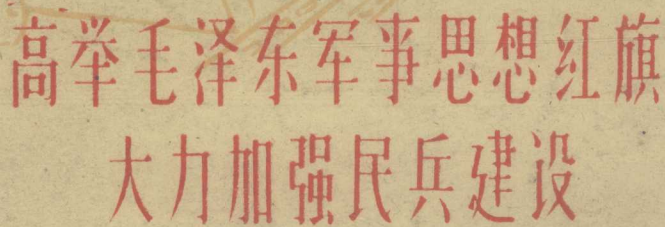 高举毛泽东军事思想红旗
大力加强民兵建设